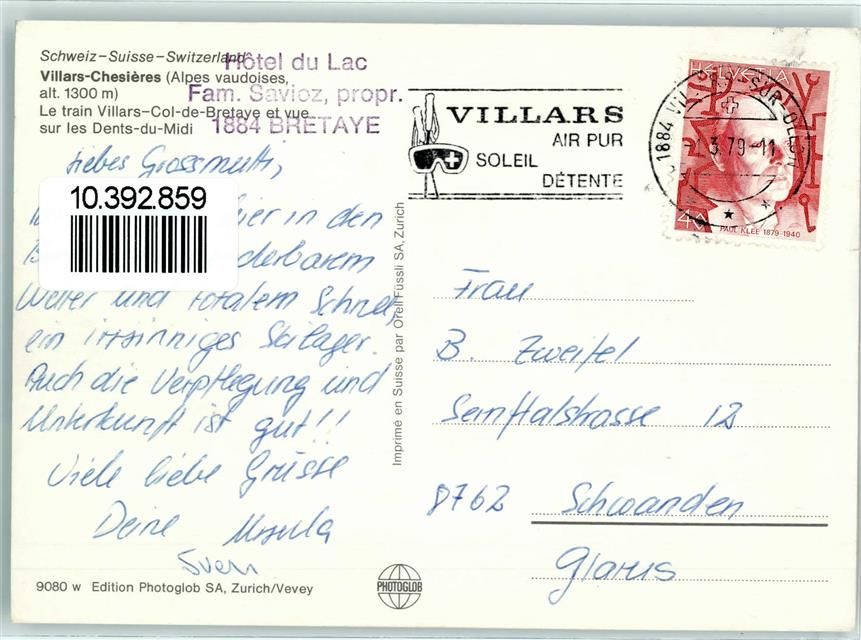 Schweiz–Suisse–Switzerland
Villars-Chesières (Alpes vaudoises,
alt. 1300 m)
Le train Villars–Col-de-Bretaye et vue
sur les Dents-du-Midi
Hôtel du Lac
Fam. Savioz, propr.
1884 BRETAYE
VILLARS
AIR PUR
SOLEIL
DÉTENTE
HELVETIA
40
PAUL KLEE 1879-1940
1884 VILLARS-SUR-OLLON
3.79-11
Liebes Grossmutti,
10.392.859
hier in den
derbarem
Wetter und totalem Schnee,
ein irrsinniges Skilager.
Auch die Verpflegung und
Unterkunft ist gut!!
Viele liebe Grüsse
Deine Ursula
Sven
Frau
B. Zweifel
Sernftalstrasse 12
8762 Schwanden
Glarus
Imprimé en Suisse par Orell Füssli SA, Zurich
9080 w Edition Photoglob SA, Zurich/Vevey
PHOTOGLOB